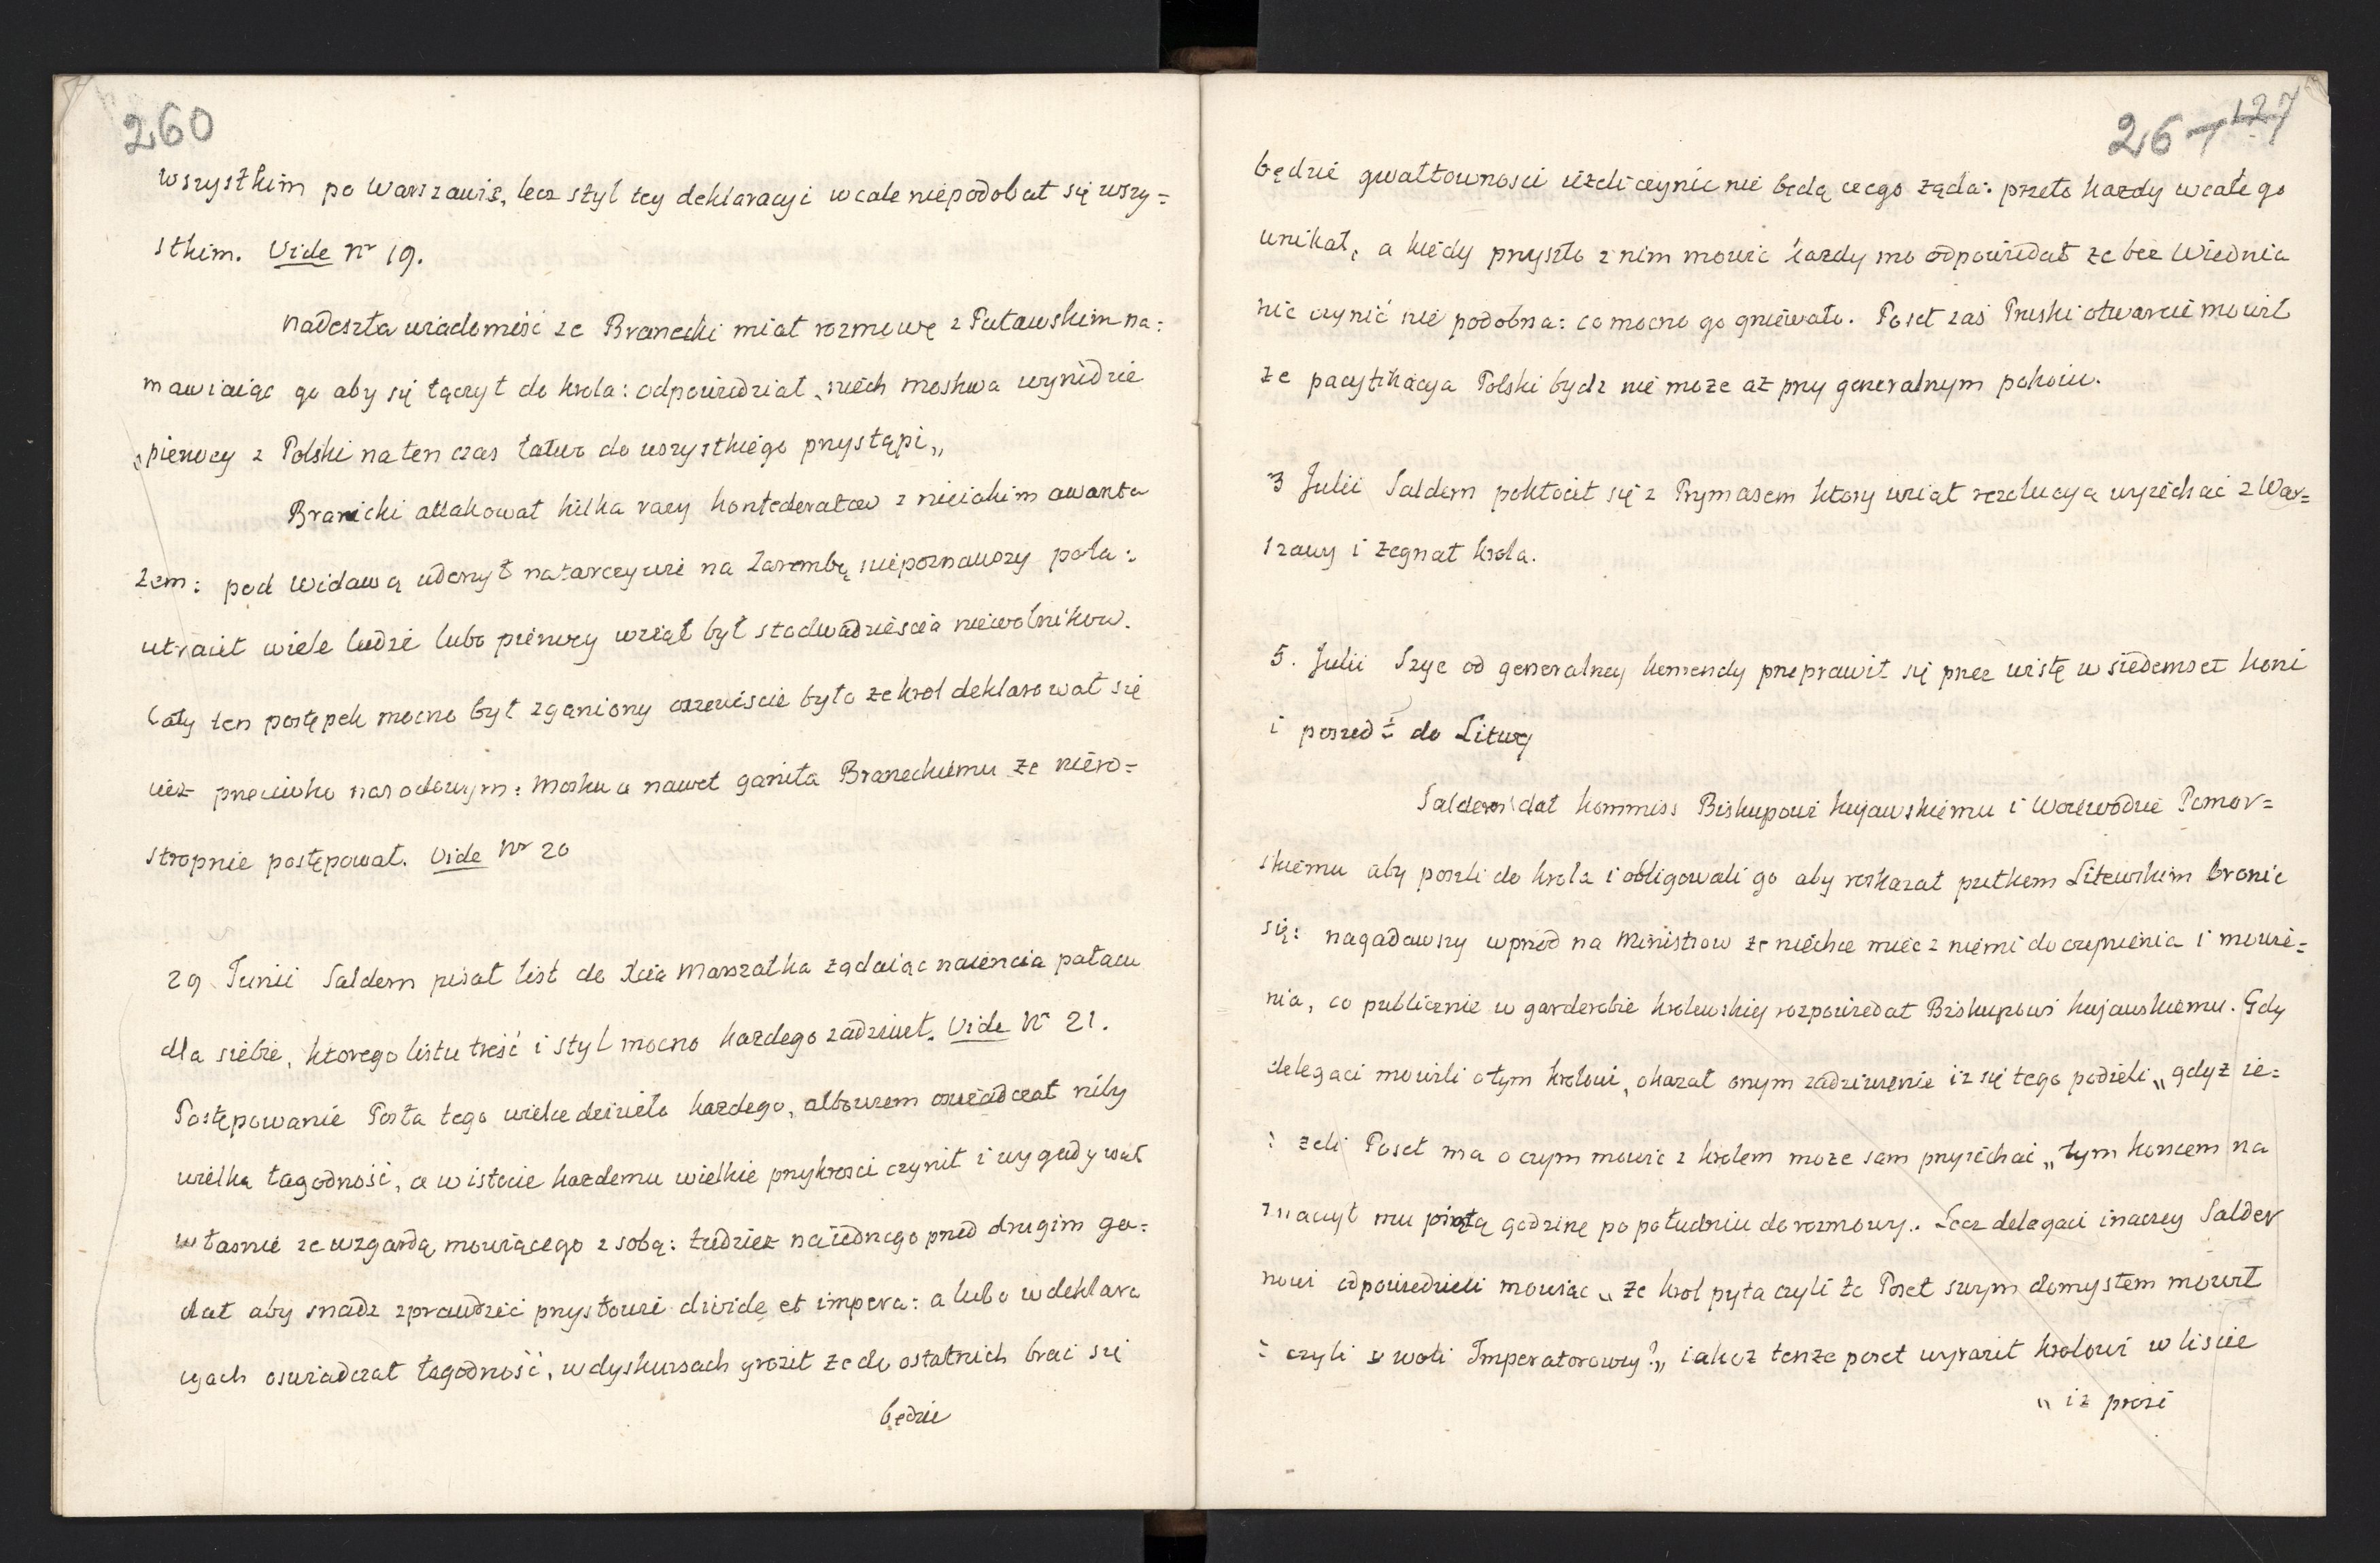 260
wszystkim po Warszawie, lecz styl tey deklaracyi wcale niepodobał się wszy=
stkim. Vide Nr 19.
Nadeszła wiadomość ze Branecki miał rozmowę z Puławskim na=
mawiaiąc go aby się łączył do krola: odpowiedział „niech moskwa wynidzie
„pierwey z Polski na ten czas łatwo do wszystkiego przystąpi„
Branicki attakował kilka razy konfederatow z nieiakim awanta
zem: pod Widawą uderzył natarczywie na Zarembę niepoznawszy pola:
utracił wiele ludzi lubo pierwey wziął był stodwadzieścia niewolnikow.
Cały ten postępek mocno był zganiony oczewiście było ze krol deklarował się
iuż przeciwko narodowym: Moskwa nawet ganiła Braneckiemu ze niero=
stropnie postępował. Vide Nr 20
29 Junii Saldern pisał list do Xcia Marszałka ządaiąc naięncia pałacu
dla siebie, ktorego listu treść i styl mocno kazdego zadziwił. Vide Nr 21.
Postępowanie Posła tego wielce dziwiło kazdego, albowiem oswiadczał niby
wielką łagodność, a w istocie kazdemu wielkie przykrosci czynił i wygadywał
własnie ze wzgardą mowiącego z sobą: tudzież na iednego przed drugim ga=
dał aby snadz zprawdzić przysłowie divide et impera: a lubo w deklara
cyach oswiadczał łagodność, w dyskursach groził ze do ostatnich brać się
będzie
261 127
będzie gwałtownosci iezeli czynic nie będą czego ząda: przeto kazdy wcale go
unikał, a kiedy przyszło z nim mowić kazdy mo odpowiedał ze bez Wiednia
nic czynić nie podobna: co mocno go gniewało. Poseł zaś Pruski otwarcie mowił
ze pacyfikacya Polski bydz nie moze aż przy generalnym pokoiu.
3 Julii Saldern pokłocił się z Prymasem ktory wziął rezolucyą wyiechać z War=
szawy i zegnał krola.
5. Julii Szyc od generalney komendy przeprawił się przez wisłę w siedemset koni
i poszedł do Litwy
Saldern dał kommiss Biskupowi kujawskiemu i Woiewodzie Pomor=
skiemu aby poszli do krola i obligowali go aby roskazał pułkom Litewskim bronić
się: nagadawszy wprzod na Ministrow ze niechce mieć z niemi do czynienia i mowie=
nia, co publicznie w garderobie krolewskiey rozpowiedał Biskupowi kujawskiemu. Gdy
delegaci mowili o tym krolowi, okazał onym zadziwienie iz się tego podieli „gdyż ie=
: zeli Poseł ma o czym mowić z krolem moze sam przyiechać „tym koncem na
znaczył mu piątą godzinę po południu do rozmowy. Lecz delegaci inaczey Salder
nowi odpowiedzieli mowiąc „ze krol pyta czyli to Poseł swym domysłem mowił
: czyli z woli Imperatorowey?„ iakoż tenze poseł wyraził krolowi w liscie
„ iz prosi